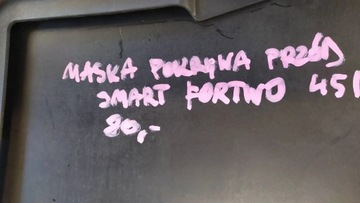 MASKA POKRYWA PRZÓD
SMART FORTWO 451
80,-